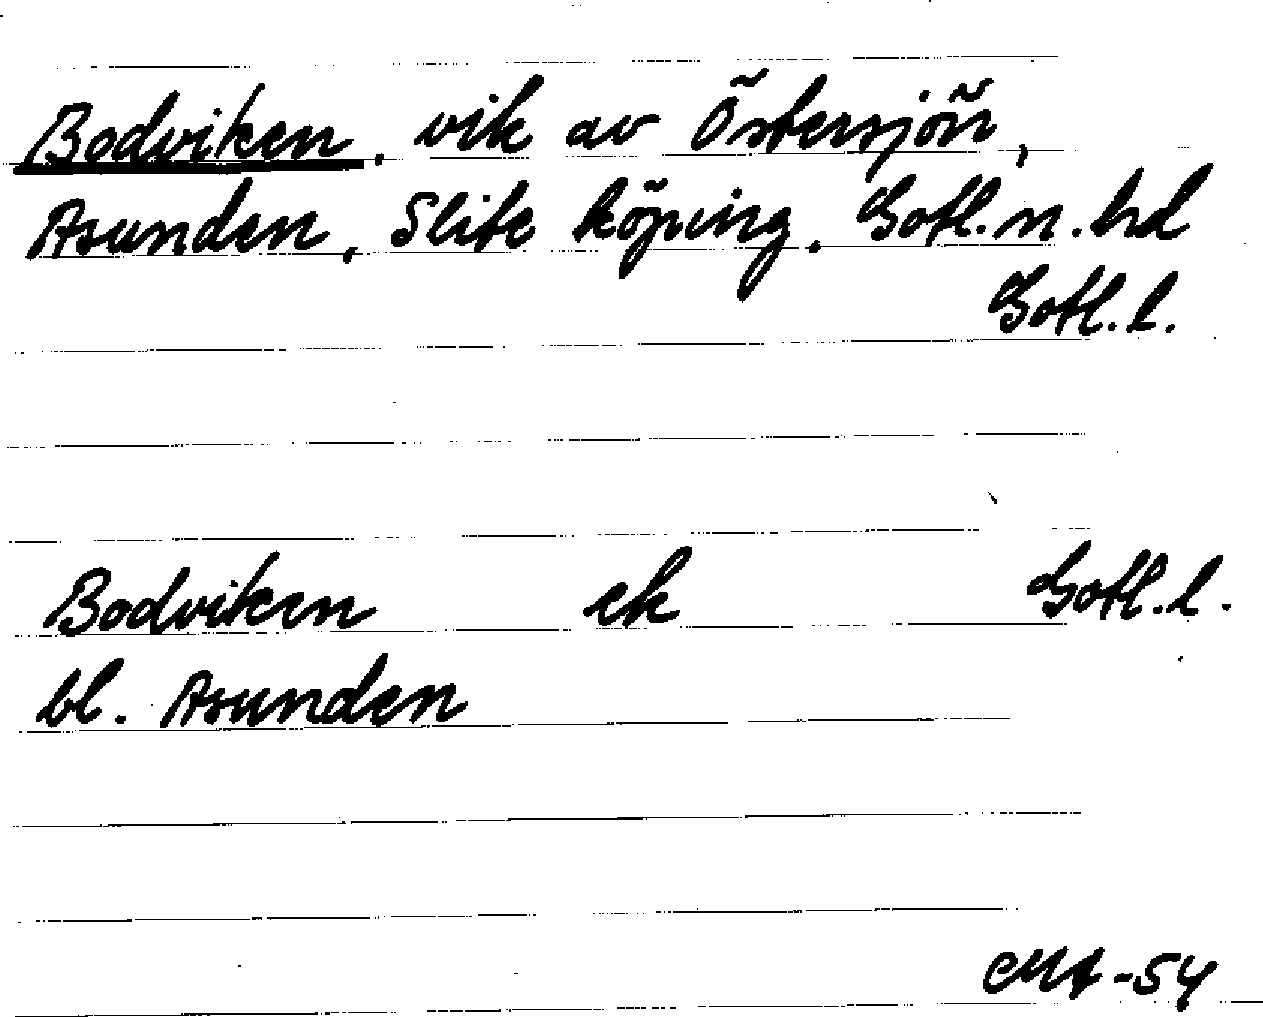 Bodviken, vik av Östersjön,
Asunden, Slite köping, Gotl. n. hd
Gotl. l.
Bodviken ek Gotl. l.
bl. Asunden
-54